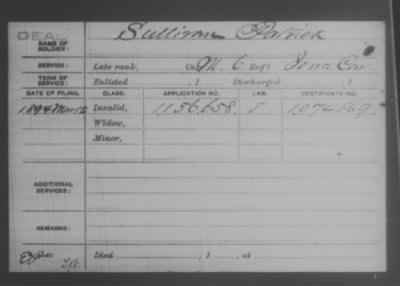 DEAL
NAME OF SOLDIER: Sullivan Patrick
SERVICE: Late rank, Co. M. 6 Reg't Iowa Cav
TERM OF SERVICE: Enlisted , 1 Discharged , 1
DATE OF FILING. CLASS. APPLICATION NO. LAW. CERTIFICATE NO.
1894 Mar 12 Invalid, 1156658 1074669
Widow,
Minor,
ADDITIONAL SERVICES:
REMARKS:
Died , 1 , at